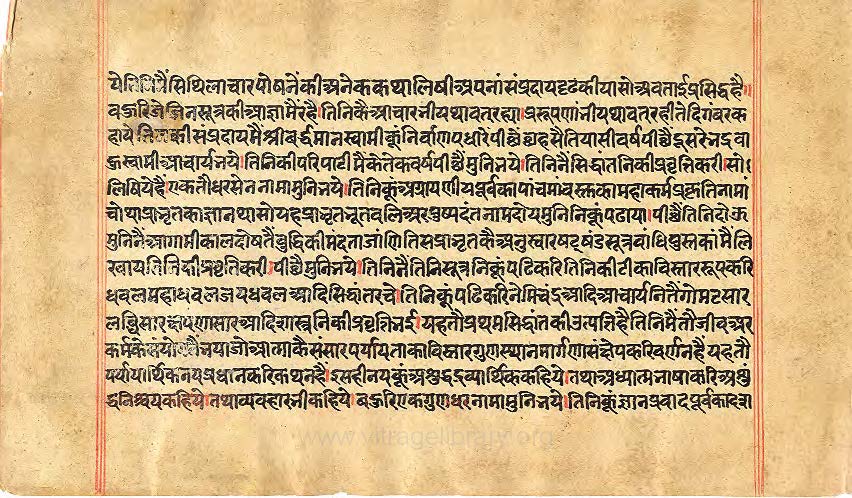 येतिनिनैं सिथिलाचारपोषनेंकी अनेक कथा लिषी अपनां संप्रदाय दृढ कीया सो अवताईं प्रसिद्ध है
वऊरि जे जिनसूत्रकी आज्ञामैं रहै। तिनिकै आचारनी यथावत रह्या। प्ररूपणांनी यथावत रही ते दिगंवर क
हाये तिनकी संप्रदायमै श्रीवर्द्धमानस्वामीकूं निर्वाण पधारे पीछै छहसैतियासी वर्ष पीछै दूसरे नद्रवा
ऊस्वामी आचार्य नये। तिनिकी परिपाटीमैं केतेक वर्ष पीछै मुनि नये। तिनिनैं सिद्धांतनिकी प्रवृत्ति करी। सो
लिषिये हैं। एक तौ धरसेन नामा मुनि नये। तिनिकूं अग्रायणीय पूर्वका पांचमा वस्तुका महाकर्मप्रकृति नामां
चोथा प्राभृतका ज्ञान था सो यह प्राभृत भूतवलि अर पुष्पदंत नाम दोय मुनिनिकूं पढाया। पीछैं तिनि दोऊ
मुनिनैं आगामी काल दोषतैं वुद्धिकी मंदता जांणि तिस प्राभृतकै अनुस्वार षट्षंड सूत्र वांधि पुस्तकांमैं लि
खाय तिनिकी प्रवृति करी। पीछैं मुनि नये। तिनिनैं तिनि सूत्रनिकूं पढिकरि तिनिकी टीका विस्ताररूप करि
धवल महाधवल जयधवल आदि सिद्धांत रचे। तिनिकूं पढिकरि नेमिचंद्र आदि आचार्यनितैं गोमटसार
लब्धिसार क्षपणासार आदि शास्त्रनिकी प्रवृति नई। यह तौ प्रथम सिद्धांतकी उत्पत्ति है तिनिमैं तौ जीव अर
कर्मके संयोगतैं नया जो आत्माकै संसारपर्याय ताका विस्तार गुणस्थान मार्गणा संक्षेपकरि वर्णन है यह तौ
पर्यायार्थिकनय प्रधानकरि कथन है। इसही नयकूं अशुद्धद्रव्यार्थिक कहिये। तथा अध्यात्मभाषाकरि अशु
द्धनिश्चय कहिये। तथा व्यवहारनी कहिये। वऊरि एक गुणधर नामा मुनि नये। तिनिकूं ज्ञानप्रवाद पूर्वका दशा
www.vitragelibrary.org